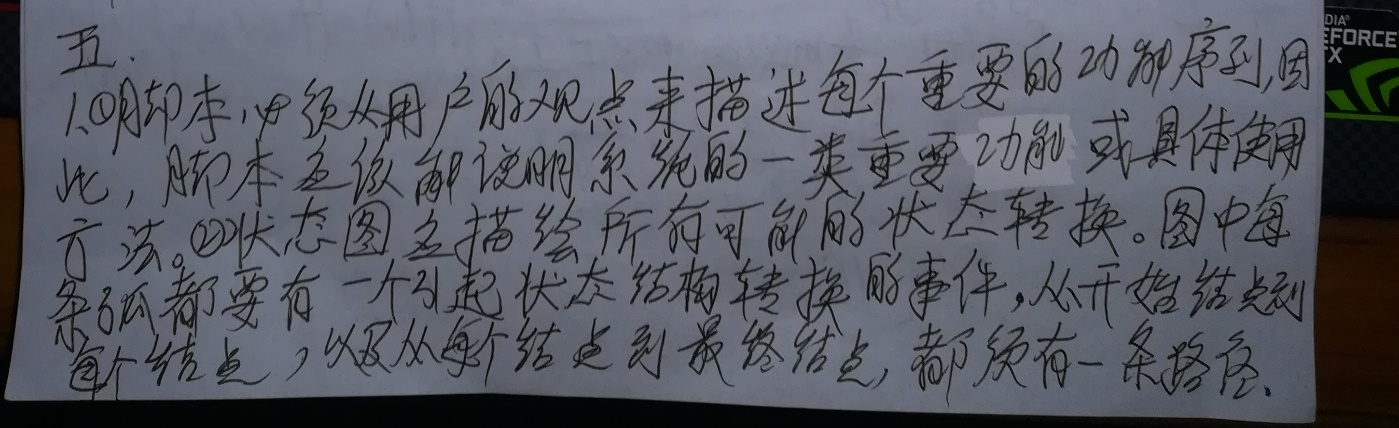 五.
1.①脚本必须从用户的观点来描述每个重要的功能序列,因
此,脚本应该能说明系统的一类重要功能或具体使用
方法。②状态图应描绘所有可能的状态转换。图中每
条弧都要有一个引起状态结构转换的事件。从开始结点到
每个结点,以及从每个结点到最终结点,都须有一条路径.
DIA
FORCE
X